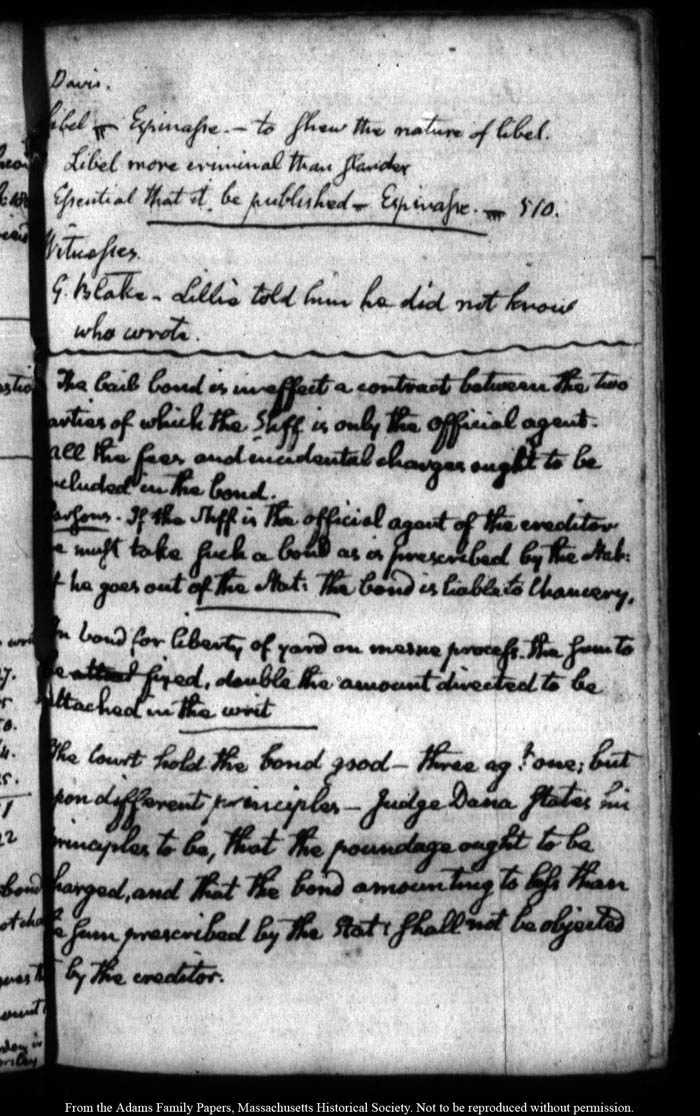 Davis.
Libel Espinasse. – to shew the nature of libel.
Libel more criminal than slander
Essential that it be published – Espinasse. 510.
Witnesses.
G. Blake – Lillie told him he did not know
who wrote.
The bail bond is in effect a contract between the two
parties of which the Shff is only the official agent.
all the fees and incidental charges ought to be
included in the bond.
Parsons. If the Shff is the official agent of the creditor
he must take such a bond as is prescribed by the Stat:
if he goes out of the Stat: the bond is liable to Chancery.
In bond for liberty of yard on mesne process. the sum to
be fixed, double the amount directed to be
attached in the writ
The Court hold the bond good – three agt one; but
upon different principles – Judge Dana states his
principles to be, that the poundage ought to be
charged, and that the bond amounting to less than
the sum prescribed by the Stat: shall not be objected
to by the creditor.
From the Adams Family Papers, Massachusetts Historical Society. Not to be reproduced without permission.